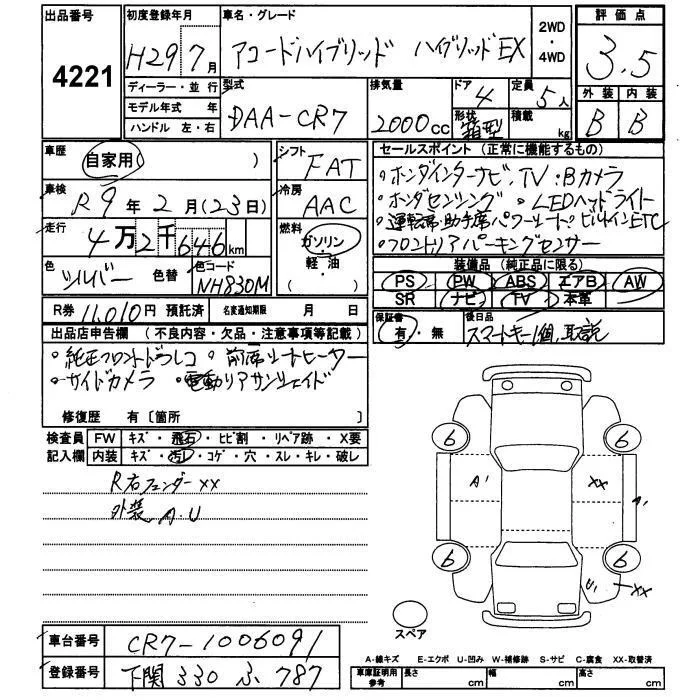 出品番号
4221
初度登録年月
H29 7月
ディーラー・並 行
モデル年式 年
ハンドル 左・右
車名・グレード
アコードハイブリッド ハイブリッドEX
2WD
・
4WD
評 価 点
3.5
外 装 内 装
B B
型式
DAA-CR7
排気量
2000cc
ドア
4
形状
箱型
定員
5人
積載
kg
車歴
自家用 )
車検
R9年2月(23日)
走行
4万2千646km
色
シルバー 色替
色コード
NH830M
シフト
FAT
冷房
AAC
燃料
ガソリン
軽・油
( )
R券 11,010円 預託済
名変通知期限 月 日
セールスポイント (正常に機能するもの)
・ホンダインターナビ、TV・Bカメラ
・ホンダセンシング ・LEDヘッドライト
・運転席・助手席パワーシート・ビルトインETC
・フロントリアパーキングセンサー
装備品 (純正品に限る)
PS PW ABS エアB AW
SR ナビ TV 本革
保証書
有・無
後日品
スマートキー1個、取説
出品店申告欄 (不良内容・欠品・注意事項等記載)
・純正フロントドラレコ ・前席シートヒーター
・サイドカメラ ・電動リアサンシェイド
修復歴 有〔箇所 〕
検査員
記入欄
FW キズ・飛石・ヒビ割・リペア跡・X要
内装 キズ・汚レ・コゲ・穴・スレ・キレ・破レ
R右フェンダーXX
外装 A.U
6 6
A' XX
6 6
XX
スペア
車台番号 CR7-1006091
登録番号 下関 330 ふ 787
A-線キズ E-エクボ U-凹み W-補修跡 S-サビ C-腐食 XX-取替済
車庫証明用
参考
長さ cm 幅 cm 高さ cm